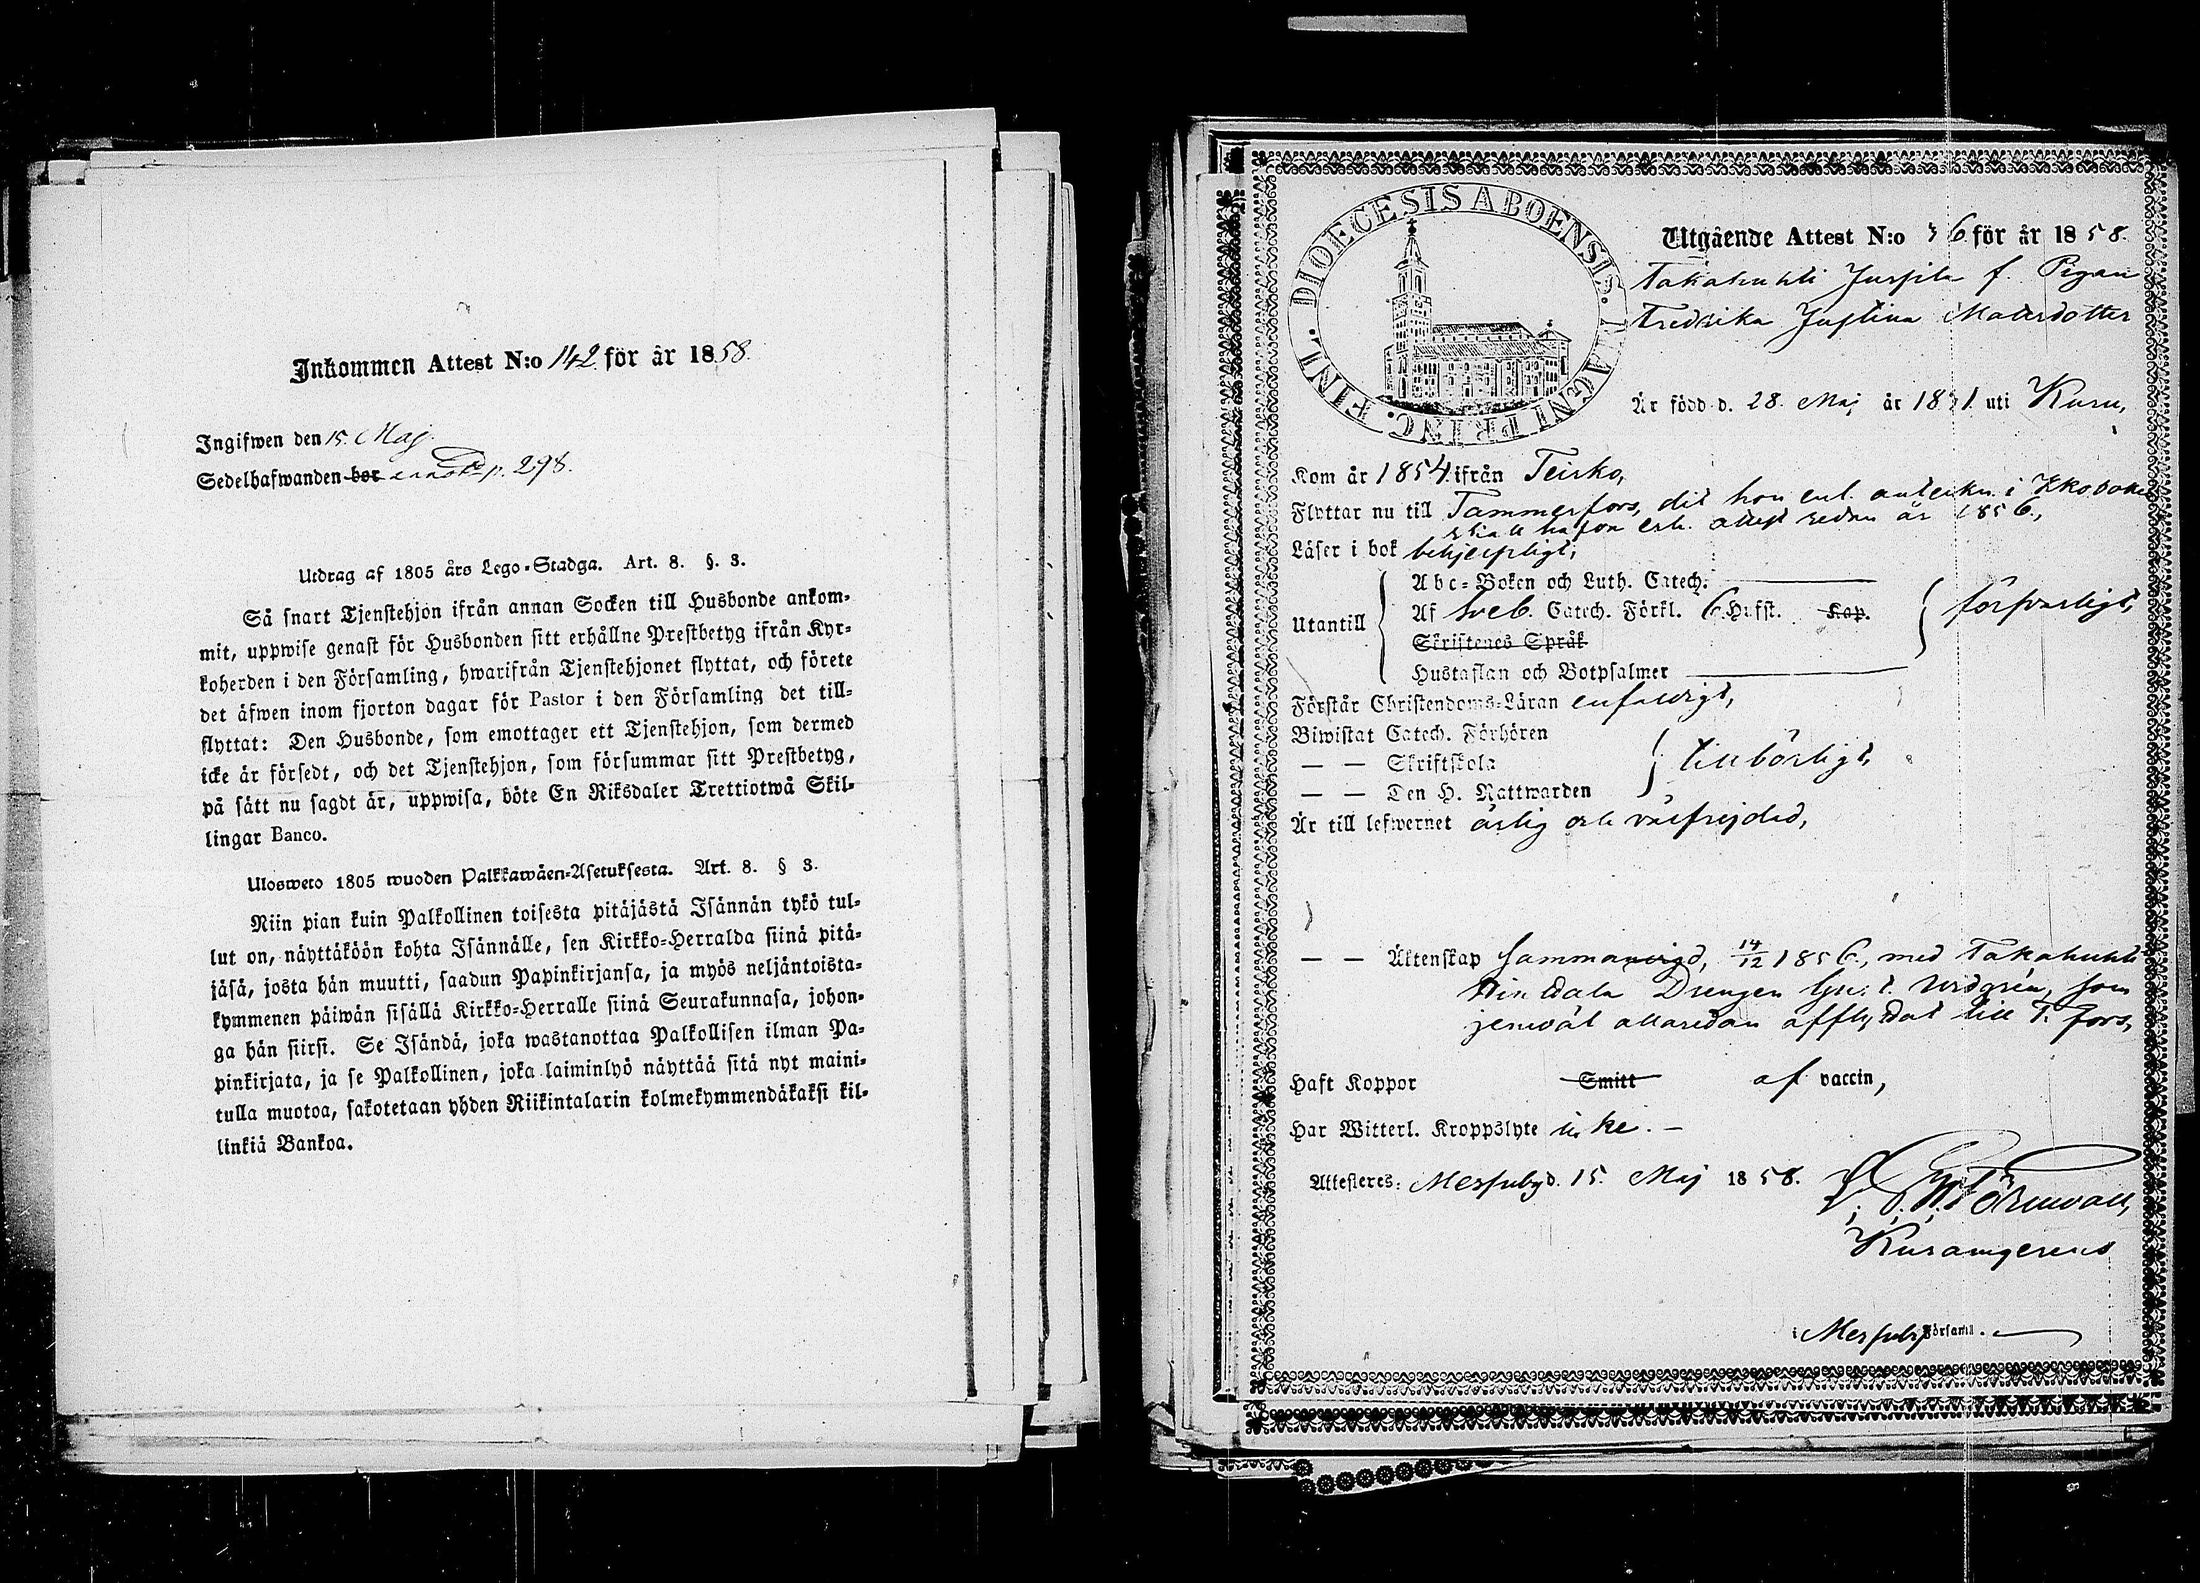 Inkommen Attest N:o 142 för år 1858.
Ingifwen den 15. Maj.
Sedelhafwanden bor p. 298.
Utdrag af 1805 års Lego-Stadga. Art. 8. §. 3.
Så snart Tjenstehjon ifrån annan Socken till Husbonde ankom-
mit, uppwise genast för Husbonden sitt erhållne Prestbetyg ifrån Kyr-
koherden i den Församling, hwarifrån Tjenstehjonet flyttat, och förete
det äfwen inom fjorton dagar för Pastor i den Församling det till-
flyttat: Den Husbonde, som emottager ett Tjenstehjon, som dermed
icke är försedt, och det Tjenstehjon, som försummar sitt Prestbetyg,
på sätt nu sagdt är, uppwisa, böte En Riksdaler Trettiotwå Skil-
lingar Banco.
Ulosweto 1805 wuoden Palkkawäen-Asetuksesta. Art. 8. § 3.
Niin pian kuin Palkollinen toisesta pitäjästä Isännän tykö tul-
lut on, näyttäköön kohta Isännälle, sen Kirkko-Herralda siinä pitä-
jäsä, josta hän muutti, saadun Papinkirjansa, ja myös neljäntoista-
kymmenen päiwän sisällä Kirkko-Herralle siinä Seurakunnasa, johon-
ga hän siirsi. Se Isändä, joka wastanottaa Palkollisen ilman Pa-
pinkirjata, ja se Palkollinen, joka laiminlyö näyttää sitä nyt maini-
tulla muotoa, sakotetaan yhden Riikintalarin kolmekymmendäkaksi kil-
linkiä Bankoa.
DIOECESIS ABOENSIS. MAGNI PRINC. FINL.
Utgående Attest N:o 36 för år 1858.
Takahuhti Jussila f. Pigan
Fredrika Justina Matsdotter
Är född d. 28. Maj år 1831. uti Kuru,
Kom år 1854 ifrån Teisko,
Flyttar nu till Tammerfors, dit hon enl. anteckn. i Kkoboken
skall hafva erh. attest redan år 1856,
Läser i bok behjelpligt,
Utantill
Abc-Boken och Luth. Catech.
Af Sveb. Catech. Förkl. 6 Hufst. Kap.
Skriftenes Språk
Hustaflan och Botpsalmer
försvarligt,
Förstår Christendoms-Läran enfaldigt,
Biwistat Catech. Förhören
— — Skriftskola
— — Den H. Nattwarden
tillbörligt,
Är till lefwernet ärlig och välfrejdad,
— — Äktenskap Sammanvigd, 14/12 1856, med Takahuhti
Drengen Widgrén, som
jemväl allaredan afflyttat till T.fors,
Haft Koppor Smitt af vaccin,
Har Witterl. Kroppslyte icke. —
Attesteres: Messuby d. 15. Maj 1858.
Törnwall,
i Messuby Församl.